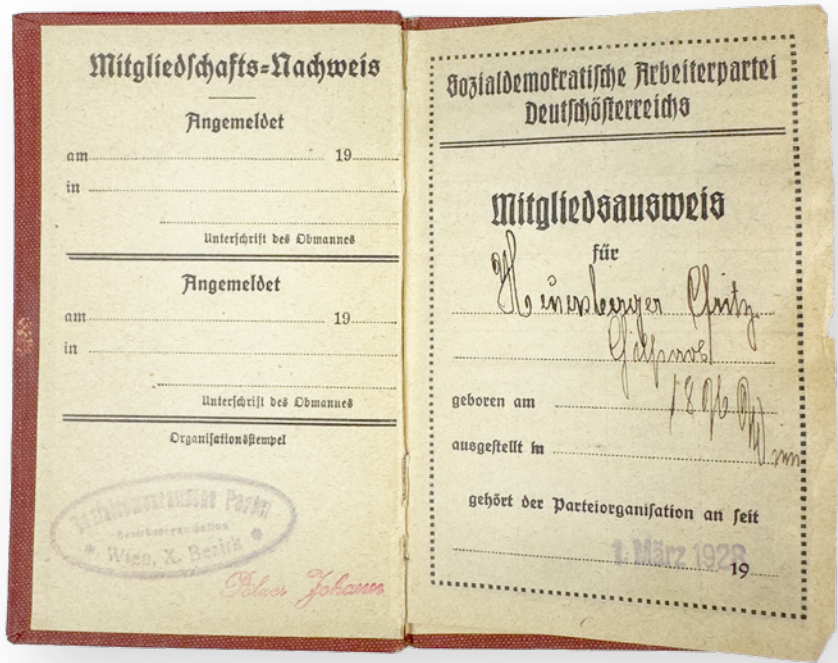 Mitgliedschafts-Nachweis
Angemeldet
am 19
in
Unterschrift des Obmannes
Angemeldet
am 19
in
Unterschrift des Obmannes
Organisationsstempel
Partei
Wien, X. Bezirk
Johann
Sozialdemokratische Arbeiterpartei
Deutschösterreichs
Mitgliedsausweis
für
Fritz
geboren am 1896
ausgestellt in Wien
gehört der Parteiorganisation an seit
1. März 1928
19